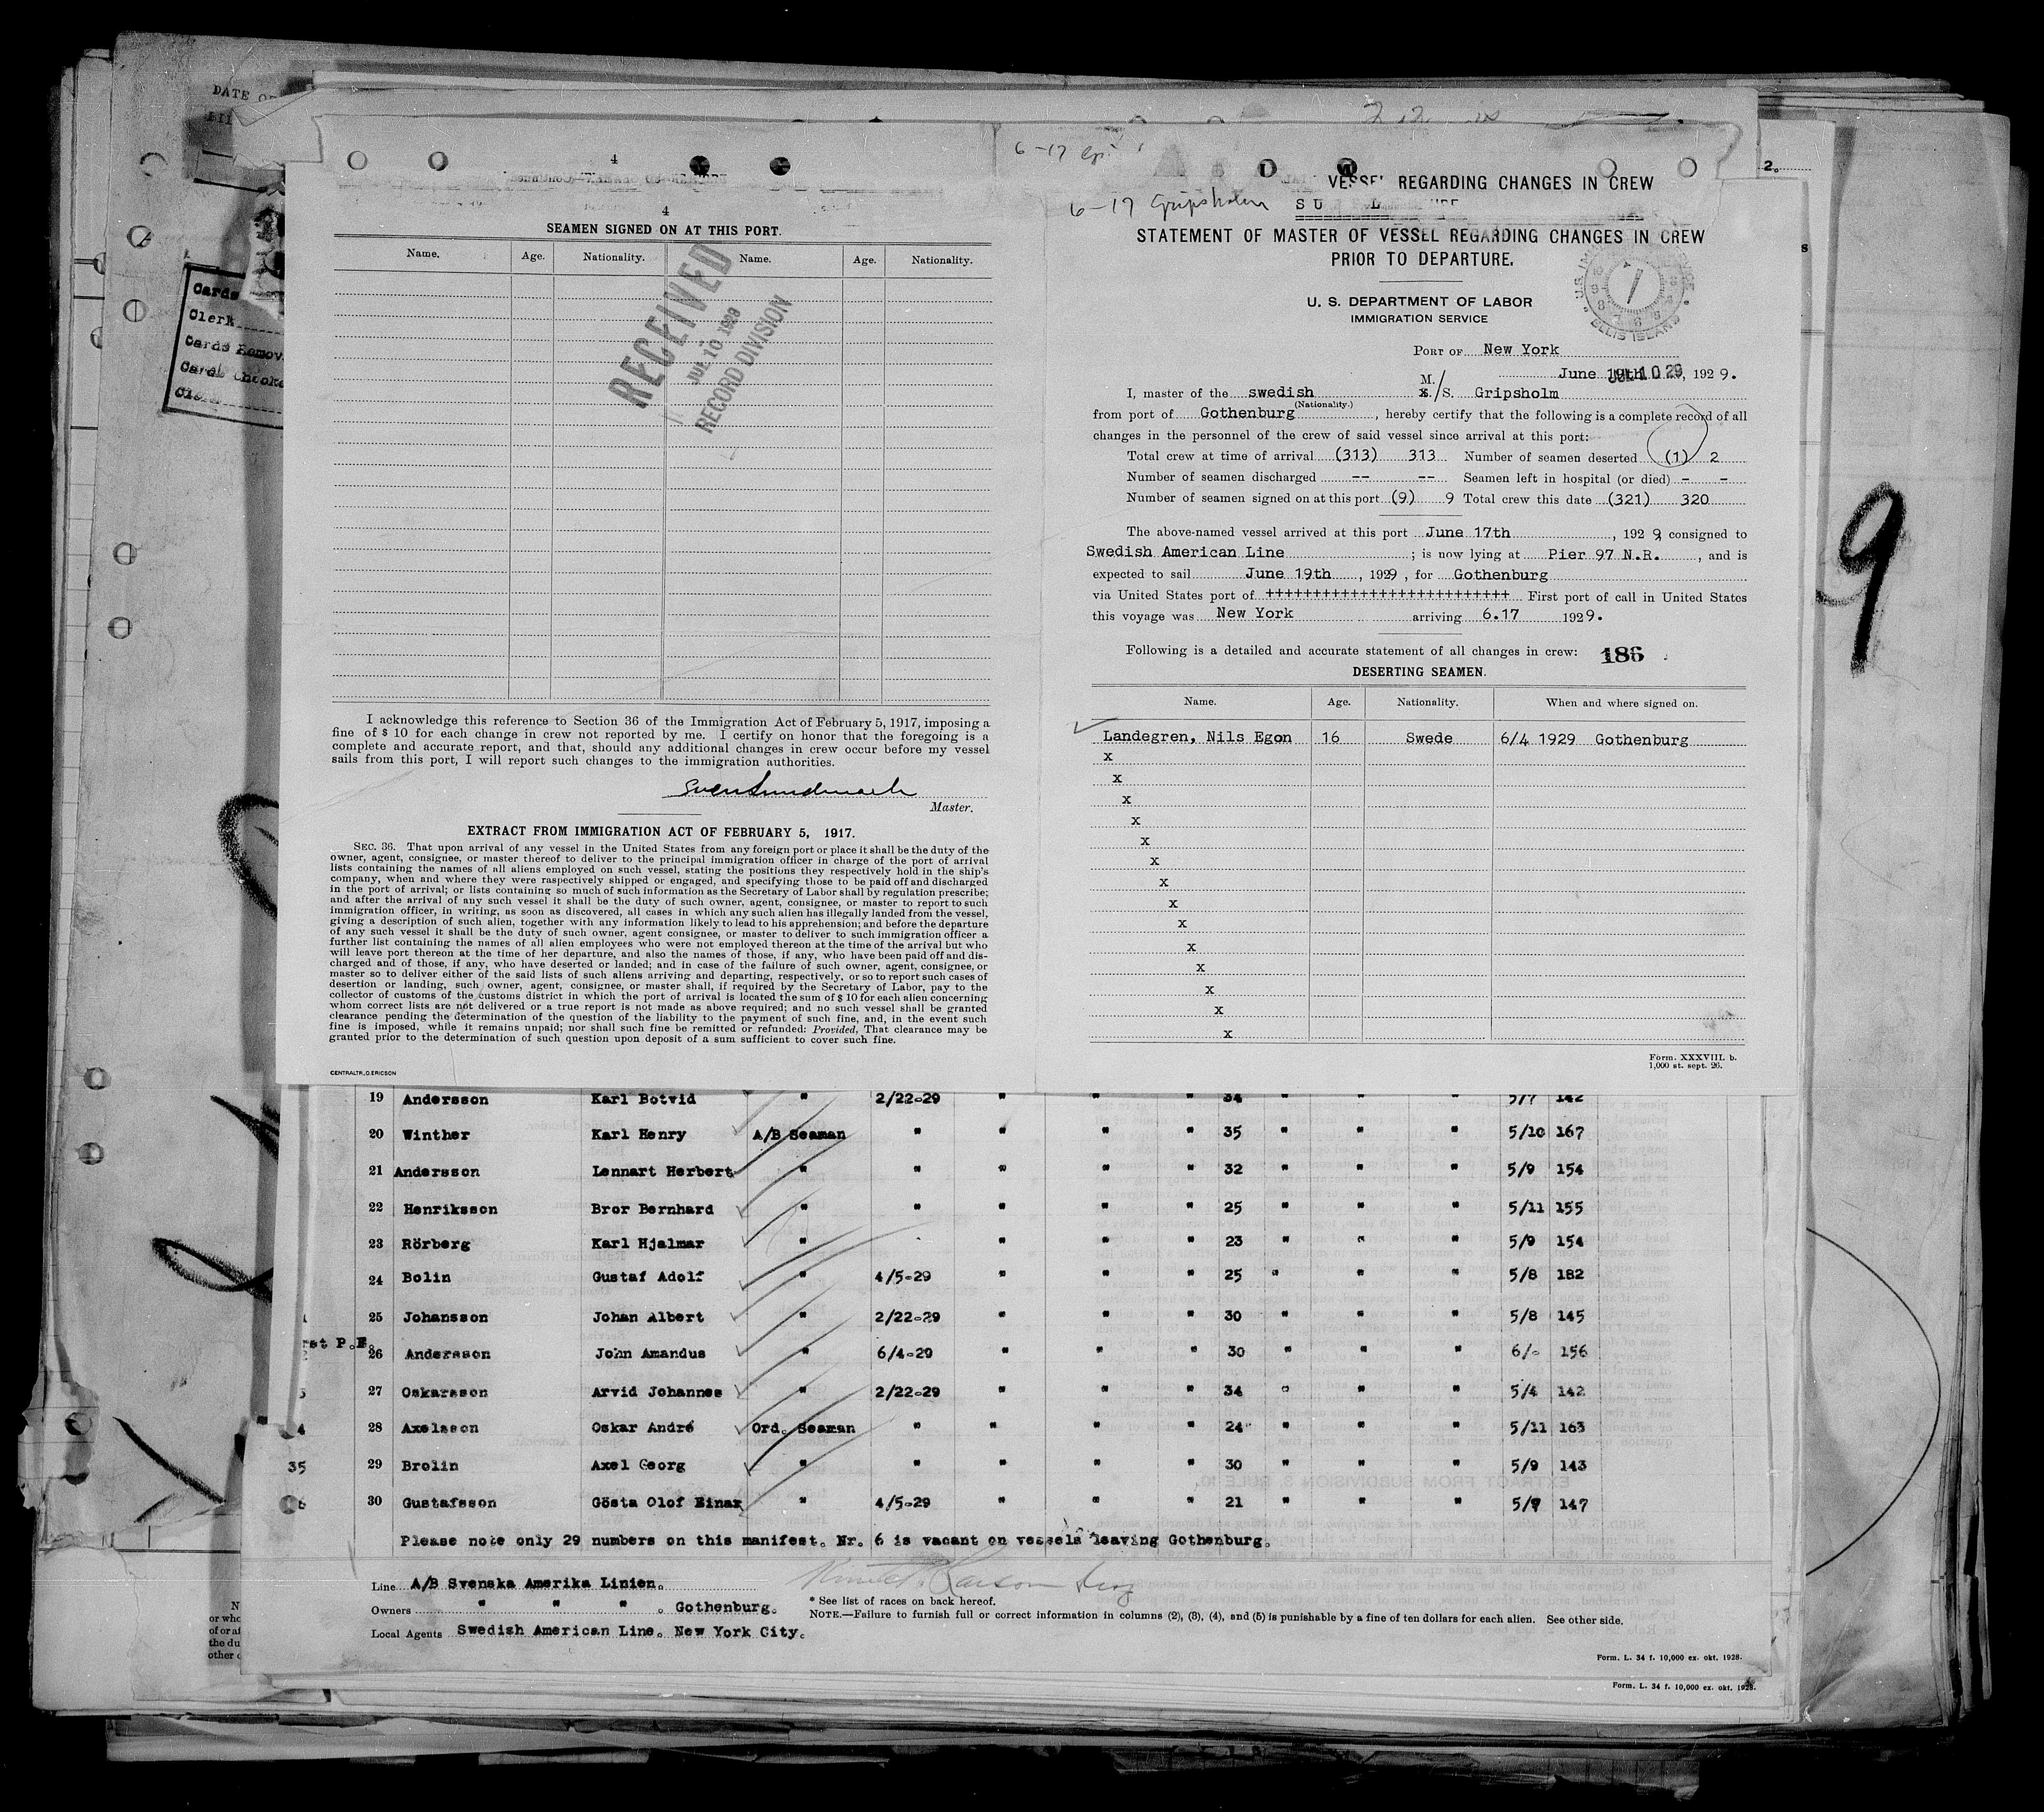 DATE OF
4
6-17 Gri
VESSEL REGARDING CHANGES IN CREW
6-17 Gripsholm
4
SEAMEN SIGNED ON AT THIS PORT.
Name. Age. Nationality. Name. Age. Nationality.
RECEIVED
JUL 10 1929
RECORD DIVISION
I acknowledge this reference to Section 36 of the Immigration Act of February 5, 1917, imposing a
fine of $ 10 for each change in crew not reported by me. I certify on honor that the foregoing is a
complete and accurate report, and that, should any additional changes in crew occur before my vessel
sails from this port, I will report such changes to the immigration authorities.
Master.
EXTRACT FROM IMMIGRATION ACT OF FEBRUARY 5, 1917.
SEC. 36. That upon arrival of any vessel in the United States from any foreign port or place it shall be the duty of the
owner, agent, consignee, or master thereof to deliver to the principal immigration officer in charge of the port of arrival
lists containing the names of all aliens employed on such vessel, stating the positions they respectively hold in the ship's
company, when and where they were raspectively shipped or engaged, and specifying those to be paid off and discharged
in the port of arrival; or lists containing so much of such information as the Secretary of Labor shall by regulation prescribe;
and after the arrival of any such vessel it shall be the duty of such owner, agent, consignee, or master to report to such
immigration officer, in writing, as soon as discovered, all cases in which any such alien has illegally landed from the vessel,
giving a description of such alien, together with any information likely to lead to his apprehension; and before the departure
of any such vessel it shall be the duty of such owner, agent consignee, or master to deliver to such immigration officer a
further list containing the names of all alien employees who were not employed thereon at the time of the arrival but who
will leave port thereon at the time of her departure, and also the names of those, if any, who have been paid off and dis-
charged and of those, if any, who have deserted or landed; and in case of the failure of such owner, agent, consignee, or
master so to deliver either of the said lists of such aliens arriving and departing, respectively, or so to report such cases of
desertion or landing, such owner, agent, consignee, or master shall, if required by the Secretary of Labor, pay to the
collector of customs of the customs district in which the port of arrival is located the sum of $ 10 for each alien concerning
whom correct lists are not delivered or a true report is not made as above required; and no such vessel shall be granted
clearance pending the determination of the question of the liability to the payment of such fine, and, in the event such
fine is imposed, while it remains unpaid; nor shall such fine be remitted or refunded: Provided, That clearance may be
granted prior to the determination of such question upon deposit of a sum sufficient to cover such fine.
CENTRALTR., G. ERICSON
STATEMENT OF MASTER OF VESSEL REGARDING CHANGES IN CREW
PRIOR TO DEPARTURE.
U. S. DEPARTMENT OF LABOR
IMMIGRATION SERVICE
ELLIS ISLAND
PORT OF New York
June 19th, 1929.
JUL 10 29
I, master of the swedish M./S. Gripsholm
(Nationality.)
from port of Gothenburg, hereby certify that the following is a complete record of all
changes in the personnel of the crew of said vessel since arrival at this port:
Total crew at time of arrival (313) 313 Number of seamen deserted (1) 2
Number of seamen discharged -- -- Seamen left in hospital (or died) - -
Number of seamen signed on at this port (9) 9 Total crew this date (321) 320
The above-named vessel arrived at this port June 17th, 1929, consigned to
Swedish American Line; is now lying at Pier 97 N.R., and is
expected to sail June 19th, 1929, for Gothenburg
via United States port of ++++++++++++++++++++++++++ First port of call in United States
this voyage was New York arriving 6.17 1929.
Following is a detailed and accurate statement of all changes in crew: 186
DESERTING SEAMEN.
Name. Age. Nationality. When and where signed on.
Landegren, Nils Egon 16 Swede 6/4 1929 Gothenburg
x
x
x
x
x
x
x
x
x
x
x
x
x
x
Form. XXXVIII. b.
1,000 st. sept. 26.
9
Cards
Clerk
Cards Remov
Cards Checke
Clerk
19 Andersson Karl Botvid " 2/22-29 " " " 34 " " " 5/7 142
20 Winther Karl Henry A/B Seaman " " " " 35 " " " 5/10 167
21 Andersson Lennart Herbert " " " " " 32 " " " 5/9 154
22 Henriksson Bror Bernhard " " " " " 25 " " " 5/11 155
23 Rörberg Karl Hjalmar " " " " 23 " " " 5/9 154
24 Bolin Gustaf Adolf " 4/5-29 " " " 25 " " " 5/8 182
25 Johansson Johan Albert " 2/22-29 " " " 30 " " " 5/8 145
rst P.E.
26 Andersson John Amandus " 6/4-29 " " " 30 " " " 6/- 156
27 Oskarsson Arvid Johannes " 2/22-29 " " " 34 " " " 5/4 142
28 Axelsson Oskar André Ord. Seaman " " " " 24 " " " 5/11 163
35 29 Brolin Axel Georg " " " " " 30 " " " 5/9 143
30 Gustafsson Gösta Olof Einar " 4/5-29 " " " 21 " " " 5/7 147
Please note only 29 numbers on this manifest. Nr. 6 is vacant on vessels leaving Gothenburg.
Line A/B Svenska Amerika Linien.
Owners " " " . Gothenburg.
Local Agents Swedish American Line. New York City.
* See list of races on back hereof.
NOTE.—Failure to furnish full or correct information in columns (2), (3), (4), and (5) is punishable by a fine of ten dollars for each alien. See other side.
Form. L. 34 f. 10,000 ex. okt. 1928.
Form. L. 34 f. 10,000 ex. okt. 1928.
N
or who
of or af
the du
other c